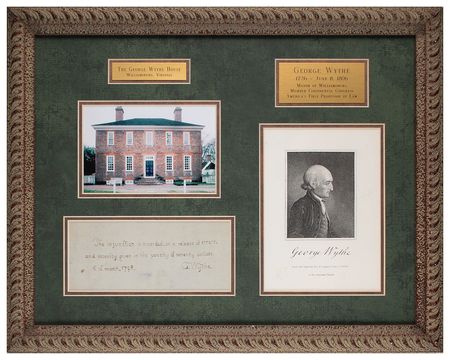 THE GEORGE WYTHE HOUSE
WILLIAMSBURG, VIRGINIA
GEORGE WYTHE
1726 - JUNE 8, 1806
MAYOR OF WILLIAMSBURG,
MEMBER CONTINENTAL CONGRESS
AMERICA'S FIRST PROFESSOR OF LAW
The injunction is awarded on a release of errors
and security given in the penalty of seventy dollars
of march, 1798. G. Wythe.
George Wythe